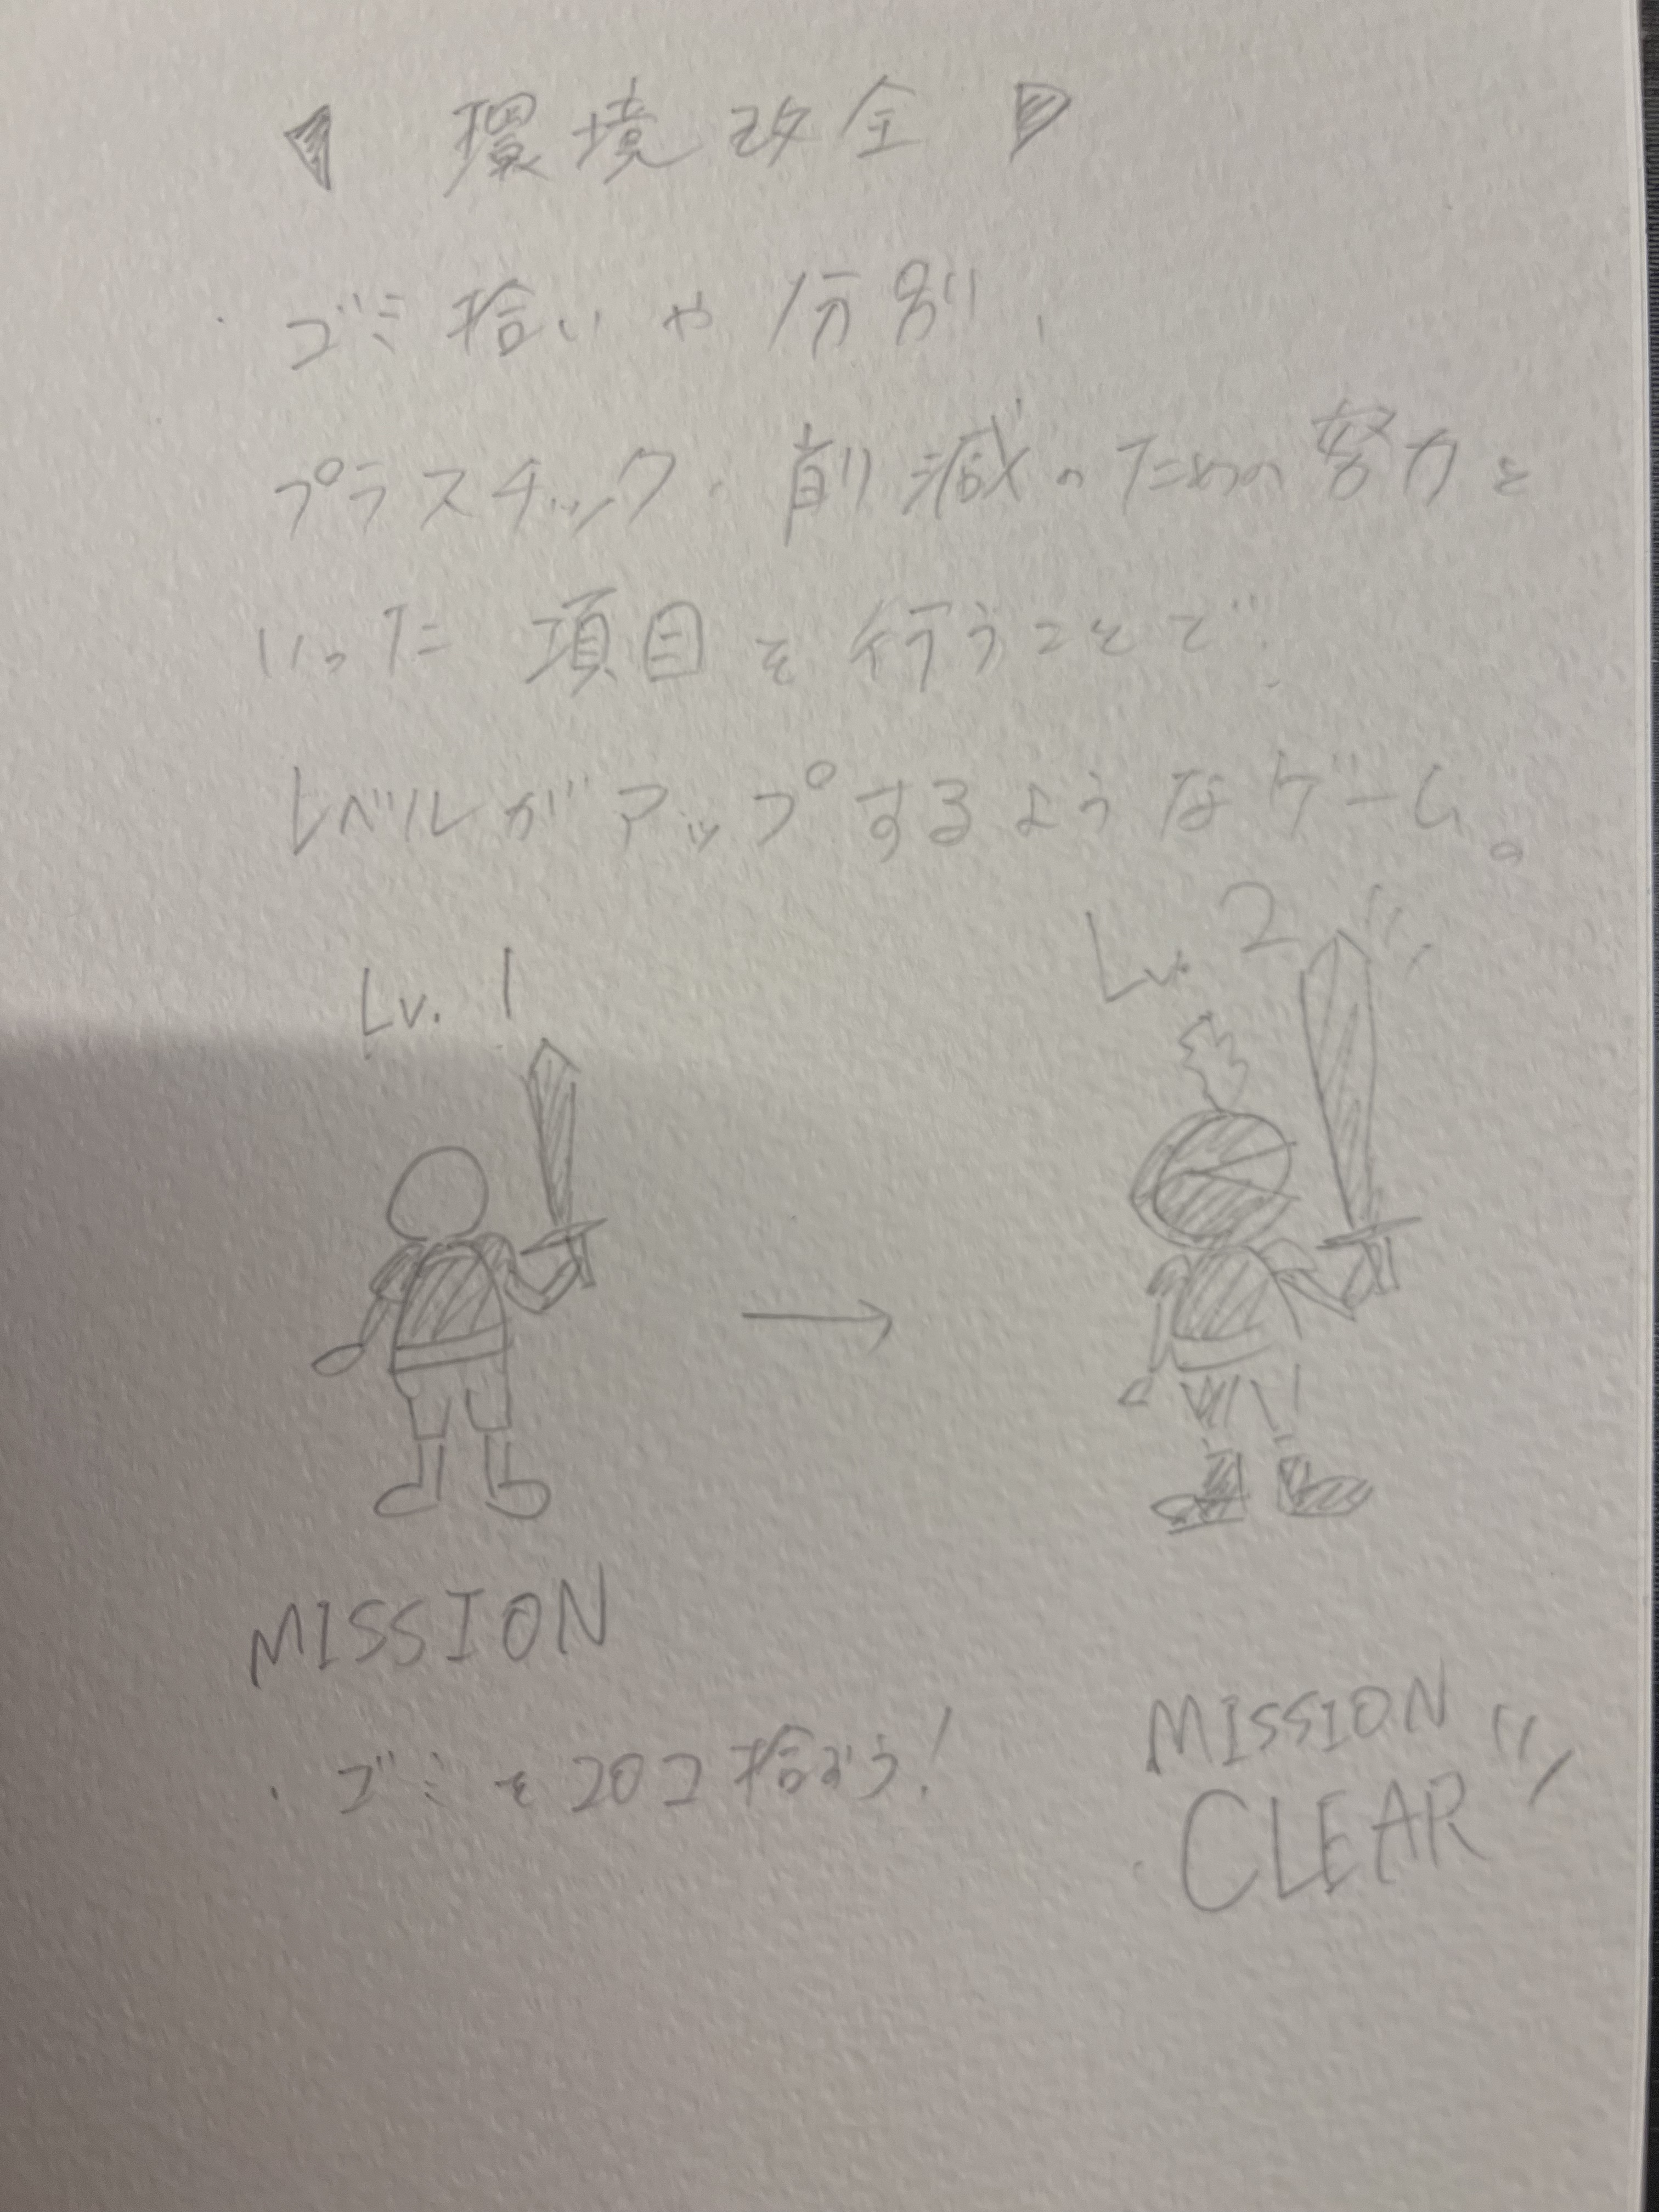 環境改全
・ゴミ拾いや分別、
プラスチック削減のための努力と
いった項目を行うことで
レベルがアップするようなゲーム。
Lv. 1
Lv. 2
MISSION
・ゴミを20コ拾おう!
MISSION
CLEAR